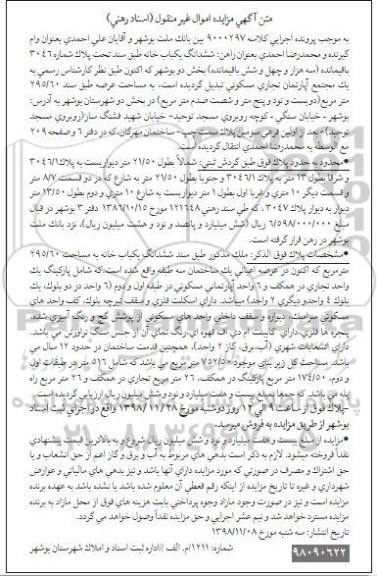 متن آگهي مزايده اموال غير منقول (اسناد رهني)
به موجب پرونده اجرايي كلاسه ۹۰۰۰۲۹۷ بين بانك ملت بوشهر و آقايان علي احمدي بعنوان وام
گيرنده و محمدرضا احمدي بعنوان راهن: ششدانگ يكباب خانه طبق سند تحت پلاك شماره ۳۰۴۶
باقيمانده (سه هزار و چهل و شش باقيمانده) بخش دو بوشهر كه اكنون طبق نظر كارشناس رسمي به
يك مجتمع آپارتمان تجاري مسكوني تبديل گرديده است، به مساحت عرصه طبق سند ۲۹۵/۶۰
متر مربع (دويست و نود و پنج متر و شصت صدم متر مربع) در بخش دو شهرستان بوشهر به آدرس:
بوشهر - خيابان سنگي - كوچه روبروي مسجد توحيد- خيابان شهيد فشنگ ساز(روبروي مسجد
توحيد)- بعد از اولين فرعي سومين پلاك سمت چپ- ساختمان مهرگان، كه در دفتر ۶ وصفحه ۲۰۹
مع الوسطه به محمدرضا احمدي انتقال گرديده است.
•محدود به حدود پلاك فوق طبق گردش ثبتي: شمالاً بطول ۲۱/۵۰ متر ديواريست به پلاك ۳۰۴۶/۱
و شرقاً بطول ۱۳ متر به پلاك ۳۰۴۶/۱ و جنوبا بطول ۲۱/۵۰ متر به شارع كه در دو قسمت ۸/۷ متر
و قسمت ديگر ۱۰ متري و غربا اول بطول ۱ متر ديواريست به شارع ۱۰ متري و دوم بطول ۱۳/۵۰ متر
ديوار به ديوار پلاك ۳۰۴۷، كه طي سند رهني ۱۲۱۶۴۸ مورخ ۱۳۸۶/۱۰/۱۵ دفتر ۳ بوشهر در قبال
مبلغ ۶/۵۹۸/۰۰۰/۰۰۰ ريال (شش ميليارد و پانصد و نود و هشت ميليون ريال)، نزد بانك ملت
بوشهر در رهن قرار گرفته است.
•مشخصات پلاك فوق الذكر: ملك مذكور طبق سند ششدانگ يكباب خانه به مساحت ۲۹۵/۶۰
مترمربع كه اكنون در عرصه اعياني يك ساختمان سه طبقه واقع شده است.كه شامل پاركينگ يك
واحد تجاري در همكف و ۶ واحد آپارتماني مسكوني در طبقه اول و دوم (۶ واحد در دو بلوك، يك
بلوك ۴ واحدو ديگري ۲ واحد) ميباشد. داراي اسكلت فلزي و سقف تيرچه بلوك، كف واحد هاي
مسكوني سراميك، ديواره و سقف داخلي واحد هاي مسكوني از پوشش گچ و رنگ آميزي شده.
پنجره ها فلزي، داراي كابينت ام دي اف قهوه اي،رنگ نماي آن از جنس سنگ تراورتن مي باشد.
داراي انشعابات شهري (آب، برق، گاز ۲ واحد)، همچنين قدمت ساختمان در حدود ۱۲ سال مي
باشد. مساحت كل زير بناي موجود ۷۵۲/۵۰ متر مربع مي باشد كه شامل ۵۱۶ متر در طبقات اول
و دوم، ۱۷۴/۵۰ متر مربع پاركينگ در همكف، ۲۶ متر مربع تجاري در همكف و ۲۶ متر مربع راه
پله مي باشد كه جمعا بمبلغ بيست و هفت ميليارد و نود و شش ميليون ريال ارزيابي گرديده است.
-پلاك فوق از ساعت ۹ الي ۱۲ روز دوشنبه مورخ ۱۳۹۸/۱۱/۲۸ واقع در اجراي ثبت اسناد
بوشهر از طريق مزايده به فروش ميرسد.
•مزايده از مبلغ بيست و هفت ميليارد و نود و شش ميليون ريال شروع و به بالاترين قيمت پيشنهادي
نقداً فروخته ميشود. لازم به ذكر است بدهي هاي مربوط به آب و برق و گاز اعم از حق انشعاب و يا
حق اشتراك و مصرف در صورتي كه مورد مزايده داراي آنها باشد و نيز بدهي هاي مالياتي و عوارض
شهرداري و غيره تا تاريخ مزايده از اينكه رقم قطعي آن معلوم شده باشد يا نشده باشد به عهده برنده
مزايده است و نيز در صورت وجود مازاد وجوه پرداختي بابت هزينه هاي فوق از محل مازاد به برنده
مزايده مسترد خواهد شد و نيم عشر اجرايي و حق مزايده نقداً وصول خواهد مي گردد.
تاريخ انتشار: سه شنبه مورخ ۱۳۹۸/۱۱/۰۸
شماره: ۱۲۱۱/م. الف //اداره ثبت اسناد و املاك شهرستان بوشهر
۹۸۰۹۰۶۲۲